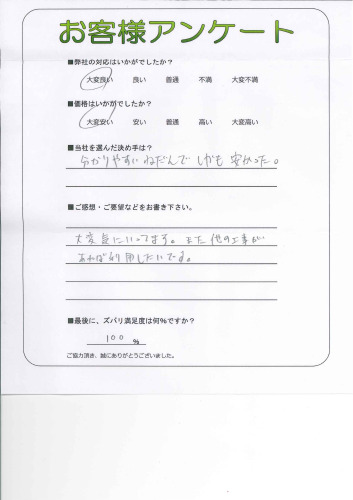 お客様アンケート
■弊社の対応はいかがでしたか？
大変良い 良い 普通 不満 大変不満
■価格はいかがでしたか？
大変安い 安い 普通 高い 大変高い
■当社を選んだ決め手は？
分かりやすいねだんで しかも 安かった。
■ご感想・ご要望などをお書き下さい。
大変気にいってます。また 他の工事が
あれば利用したいです。
■最後に、ズバリ満足度は何%ですか？
100 %
ご協力頂き、誠にありがとうございました。